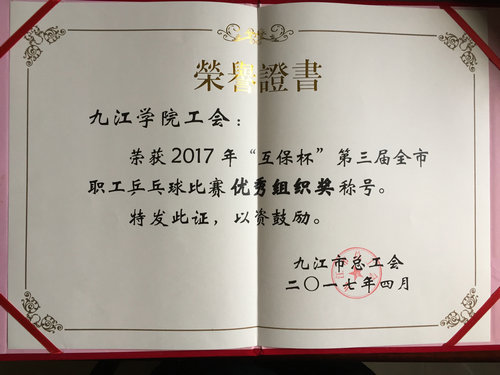 榮譽證書
九江学院工会：
荣获2017年“互保杯”第三届全市
职工乒乓球比赛优秀组织奖称号。
特发此证，以资鼓励。
九江市总工会
二〇一七年四月